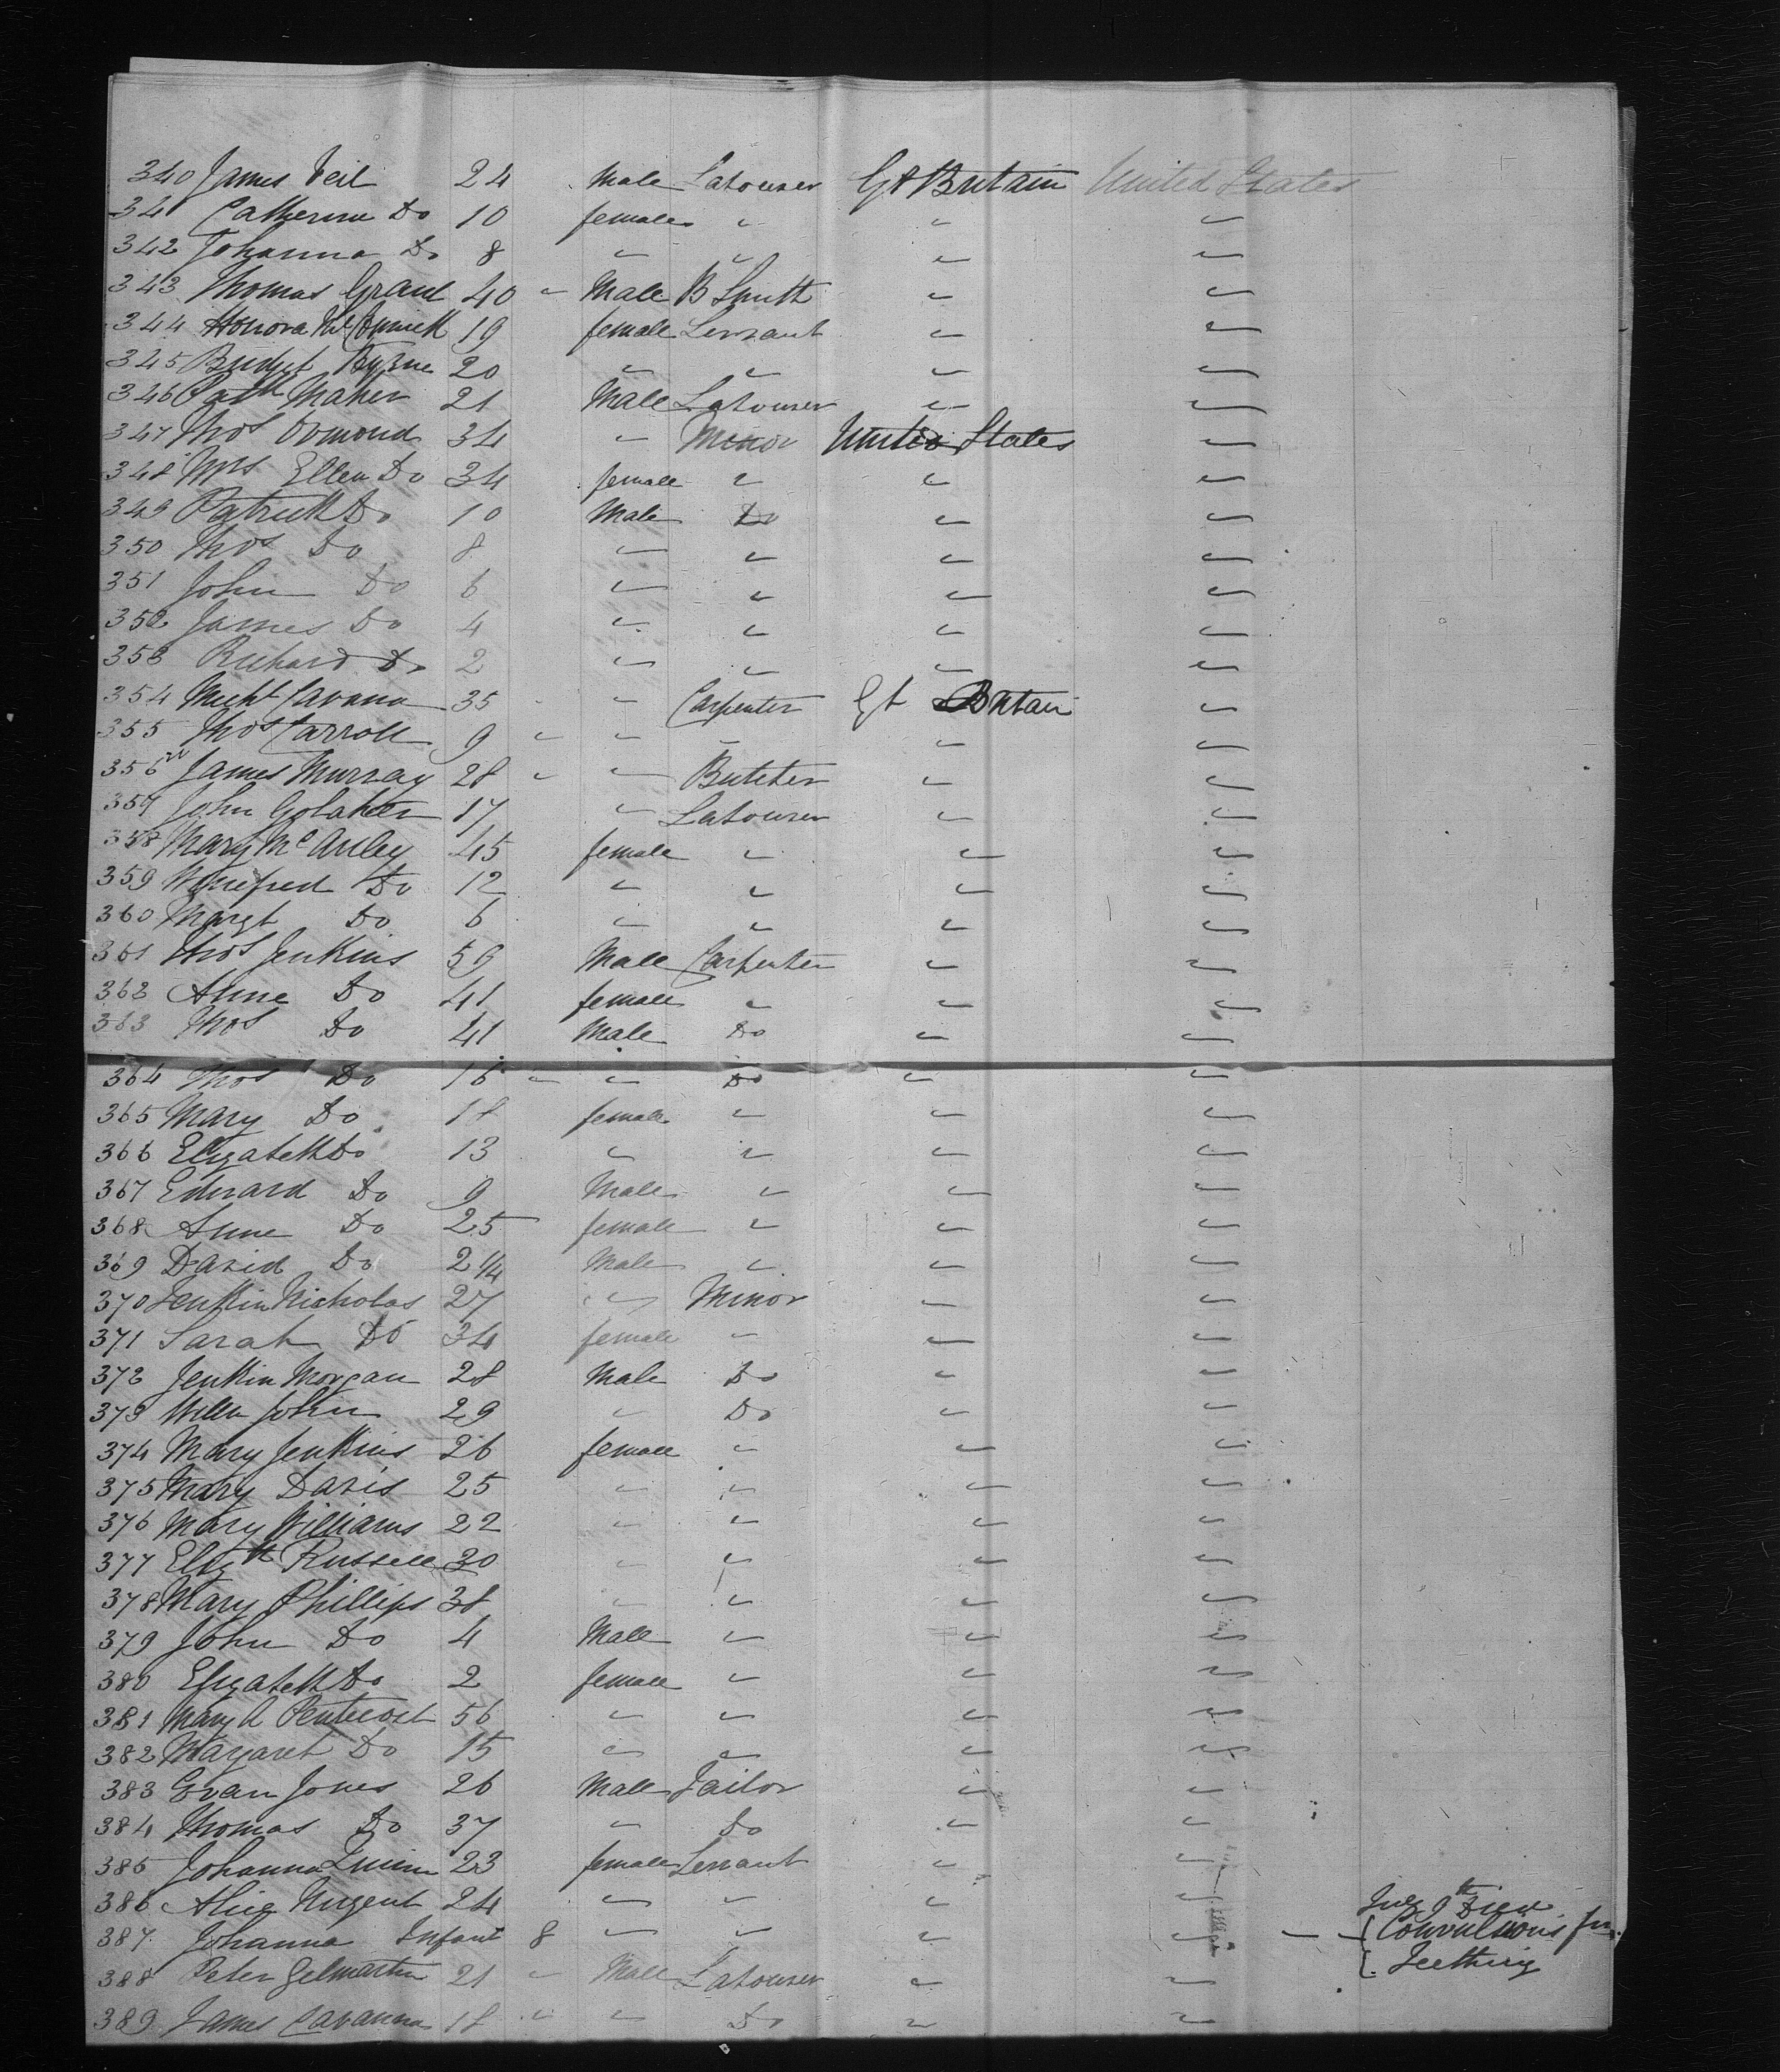 340 James Veil 24 Male Labourer Gt Britain United States
341 Catherine Do 10 female " " "
342 Johanna Do 8 " " " "
343 Thomas Grant 40 " Male B Smith " "
344 Honora McCormick 19 female Servant " "
345 Bridget Byrne 20 " " " "
346 Patk Maher 21 Male Labourer " "
347 Thos Ormond 34 " Minor United States "
348 Mrs Ellen Do 34 female " " "
349 Patrick Do 10 Male Do " "
350 Thos Do 8 " " " "
351 John Do 6 " " " "
352 James Do 4 " " " "
353 Richard Do 2 " " " "
354 Michl Cavana 35 " Carpenter Gt Britain "
355 Thos Carroll 9 " " " " "
356 James Murray 28 " " Butcher " "
357 John Golaher 17 " Labourer " "
358 Mary McAuley 45 female " " "
359 Winefred Do 12 " " " "
360 Margt Do 6 " " " "
361 Thos Jenkins 59 Male Carpenter " "
362 Anne Do 41 female " " "
363 Thos Do 41 Male Do " "
364 Thos Do 16 " " Do " "
365 Mary Do 18 female " " "
366 Elizabeth Do 13 " " " "
367 Edward Do 9 Male " " "
368 Anne Do 25 female " " "
369 David Do 2 1/4 Male " " "
370 Jenkin Nicholas 27 " Minor " "
371 Sarah Do 34 female " " "
372 Jenkin Morgan 28 Male Do " "
373 Willm John 29 " Do " "
374 Mary Jenkins 26 female " " "
375 Mary Davis 25 " " " "
376 Mary Williams 22 " " " "
377 Elizth Russell 30 " " " "
378 Mary Phillips 38 " " " "
379 John Do 4 Male " " "
380 Elizabeth Do 2 female " " "
381 Mary A Pentecost 56 " " " "
382 Margaret Do 15 " " " "
383 Evan Jones 26 Male Tailor " "
384 Thomas Do 37 " Do " "
385 Johanna Quinn 23 female Servant " "
386 Alice Nugent 24 " " " " July 9th Died
387 Johanna Infant 8 " " " " Convulsions fm
388 Peter Gelmartin 21 " Male Labourer " " Teething
389 James Cavanna 18 " " Do " "